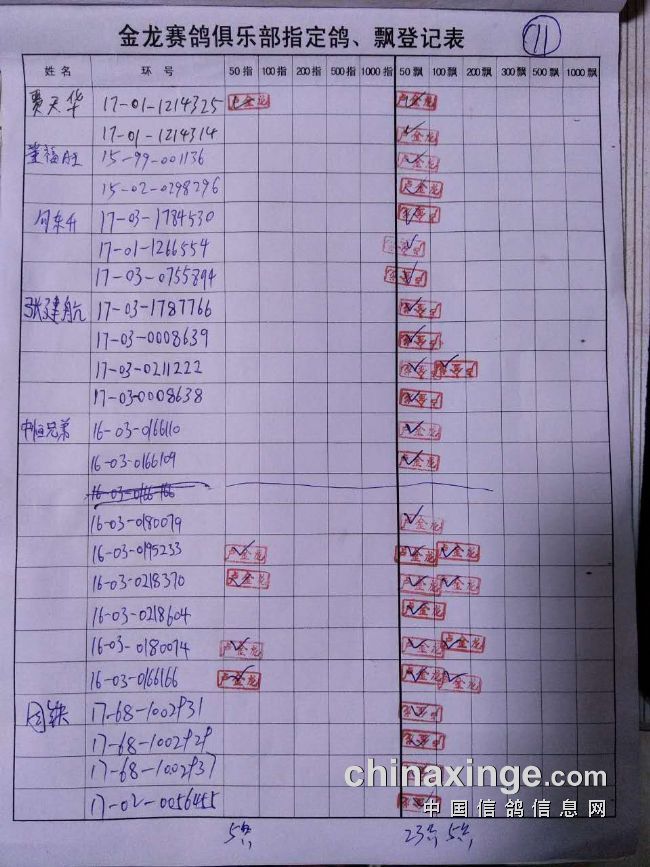 金龙赛鸽俱乐部指定鸽、飘登记表 71
姓名 环号 50指 100指 200指 500指 1000指 50飘 100飘 200飘 300飘 500飘 1000飘
贾天华 17-01-1214325 卢金龙 卢金龙
17-01-1214314 卢金龙
董福旺 15-99-001136 卢金龙
15-02-0298296 卢金龙
17-03-1784530
17-01-1266554
17-03-0755894
张建航 17-03-1787766
17-03-0008639
17-03-0211222
17-03-0008638
中恒兄弟 16-03-0166110 卢金龙
16-03-0166109 卢金龙
16-03-0166166
16-03-0180079 卢金龙
16-03-0195233 卢金龙 卢金龙 卢金龙
16-03-0218370 卢金龙 卢金龙 卢金龙
16-03-0218604 卢金龙
16-03-0180074 卢金龙 卢金龙 卢金龙
16-03-0166166 卢金龙 卢金龙 卢金龙
17-68-1002931
17-68-1002929
17-68-1002937
17-02-0056455
5 23 5
chinaxinge.com
中国信鸽信息网